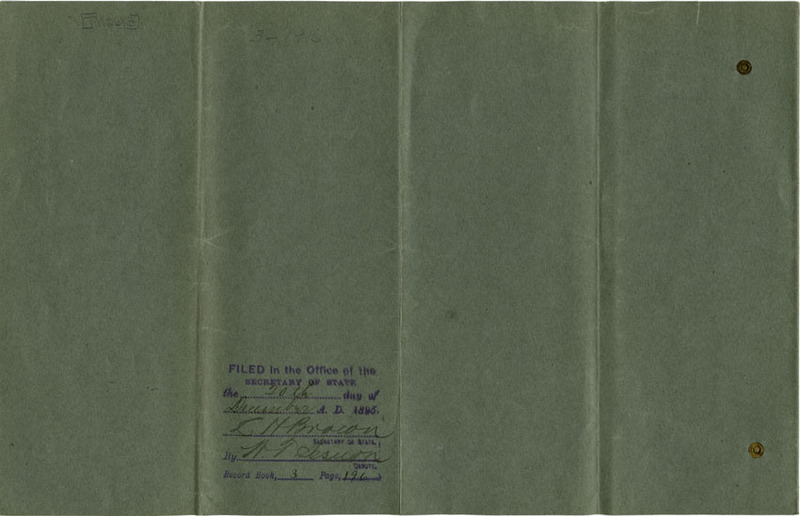 3-196
FILED in the Office of the
SECRETARY OF STATE
the 20th day of
December A. D. 1895.
L H Brown
SECRETARY OF STATE.
By
DEPUTY.
Record Book, 3 Page, 196